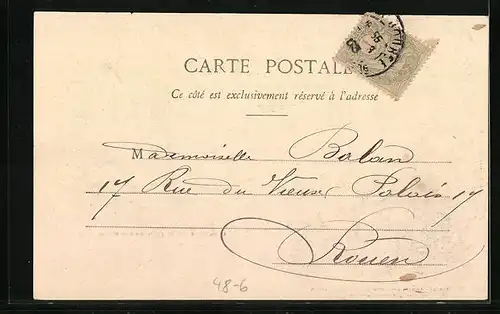 CARTE POSTALE
Ce côté est exclusivement réservé à l'adresse
Mademoiselle Balan
17 Rue du Vieux Palais 17
Rouen
48-6